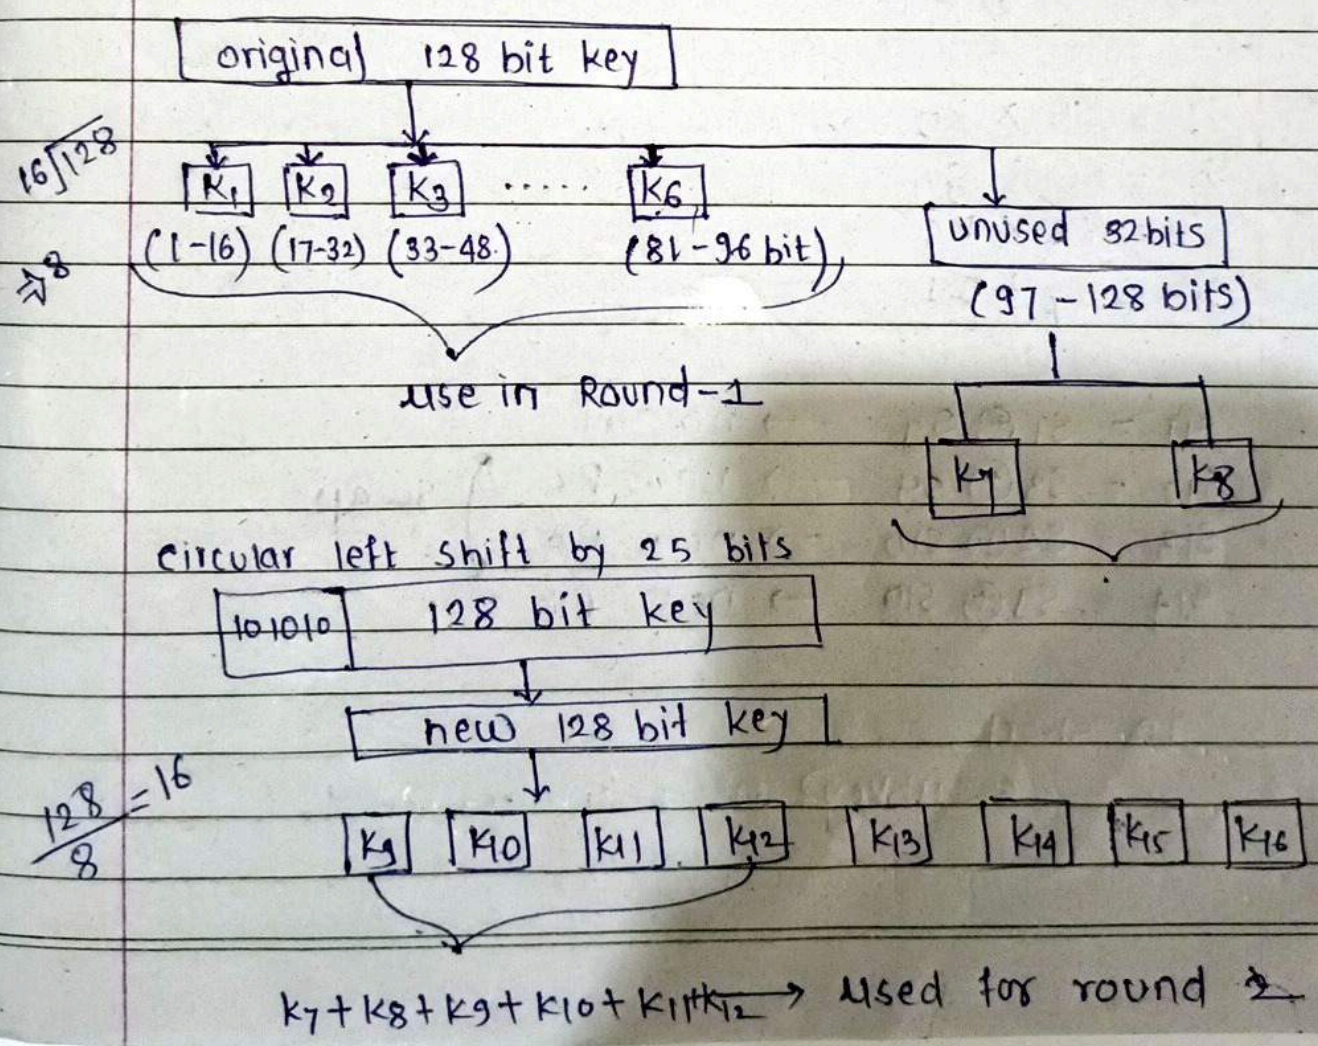 original 128 bit key
16)128
K1 K2 K3 ...... K6
unused 32 bits
(1-16) (17-32) (33-48) (81-96 bit)
⇒ 8
(97-128 bits)
use in Round-1
K7 K8
circular left shift by 25 bits
101010 128 bit key
new 128 bit key
128/8 = 16
K9 K10 K11 K12 K13 K14 K15 K16
K7+K8+K9+K10+K11+K12 → used for round 2